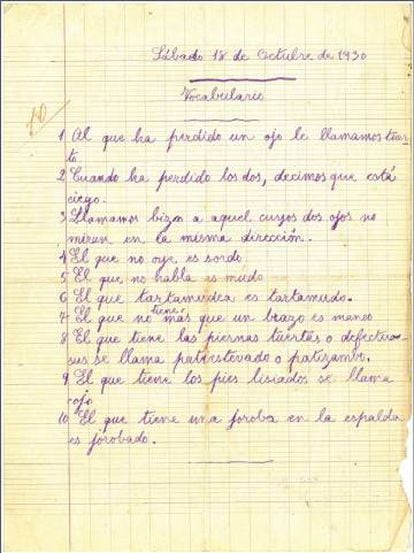 Sábado 18 de Octubre de 1930
Vocabulario
10
1 Al que ha perdido un ojo le llamamos tuer-
to.
2 Cuando ha perdido los dos, decimos que está
ciego.
3 Llamamos bizco a aquel cuyos dos ojos no
miren en la misma dirección.
4 El que no oye es sordo
5 El que no habla es mudo
6 El que tartamudea es tartamudo.
7 El que no tiene más que un brazo es manco
8 El que tiene las piernas tuertas o defectuo-
sas se llama patiestevado o patizambo.
9 El que tiene los pies lisiados se llama
cojo
10 El que tiene una joroba en la espalda
es jorobado.